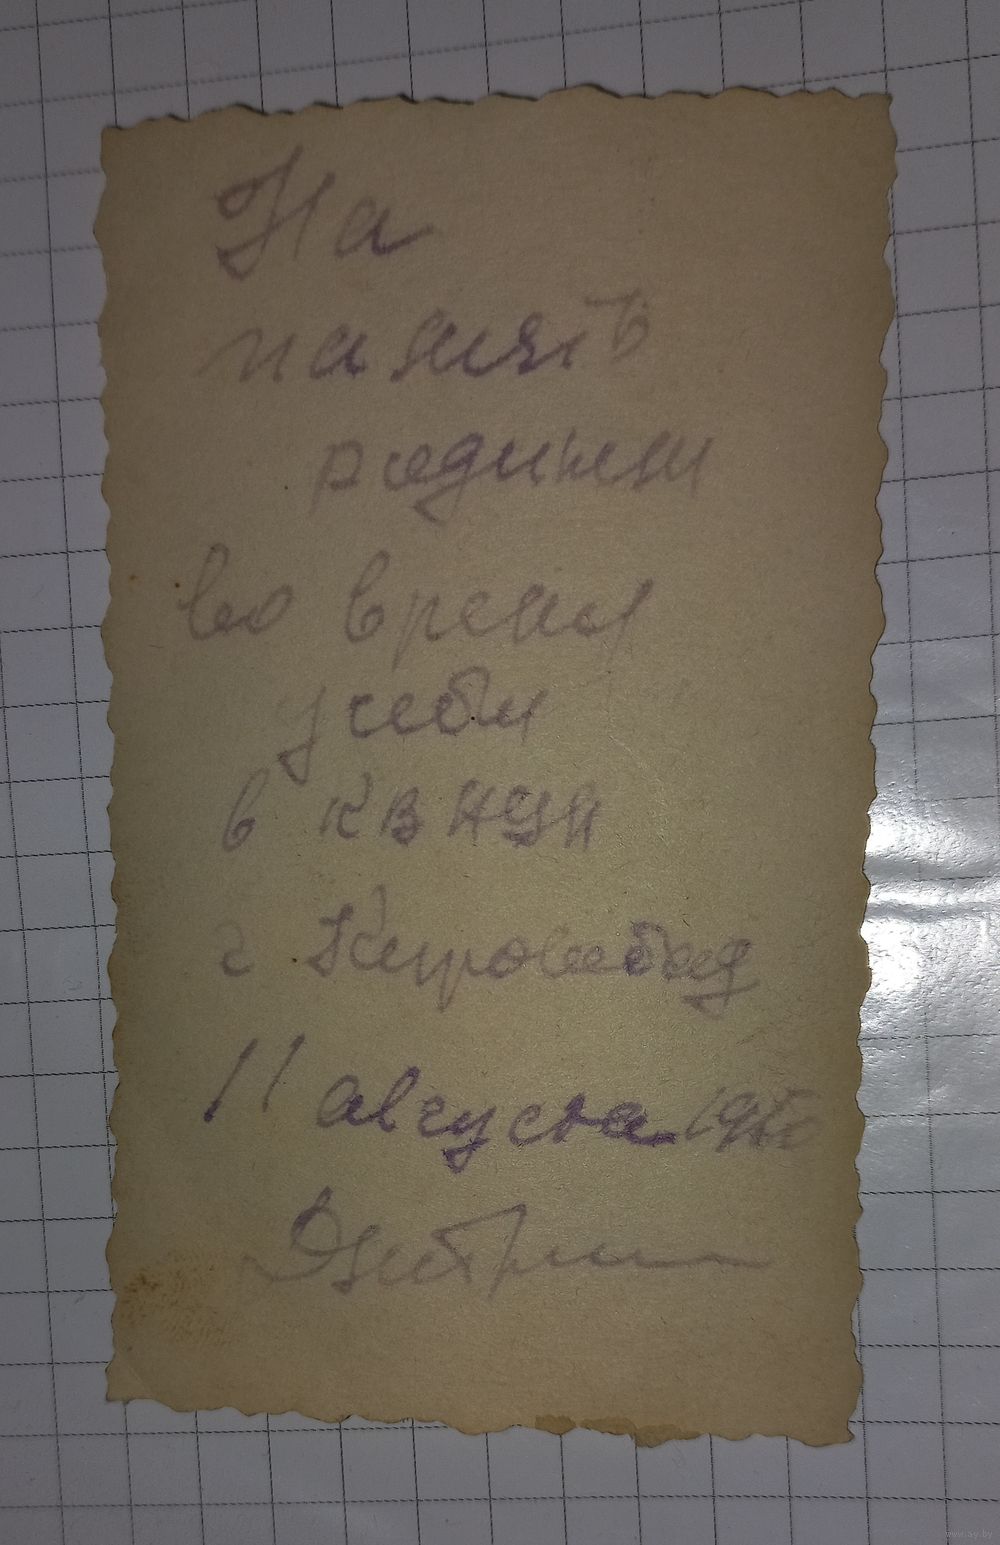 На
память
родным
во время
учебы
в КВ
г Кировабад
11 августа 195
www.ay.by